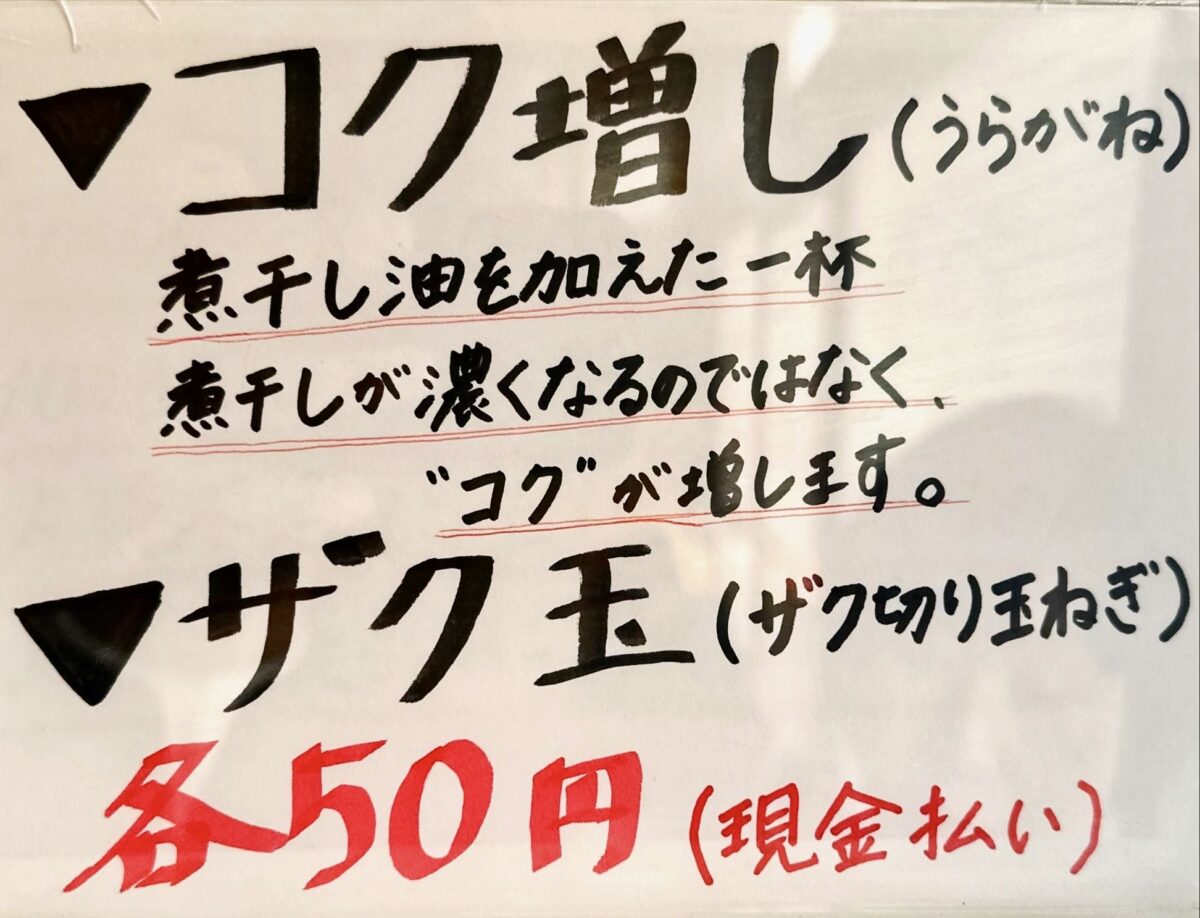 ▼コク増し(うらがね)
煮干し油を加えた一杯
煮干しが濃くなるのではなく、
"コク"が増します。
▼ザク玉(ザク切り玉ねぎ)
各50円(現金払い)